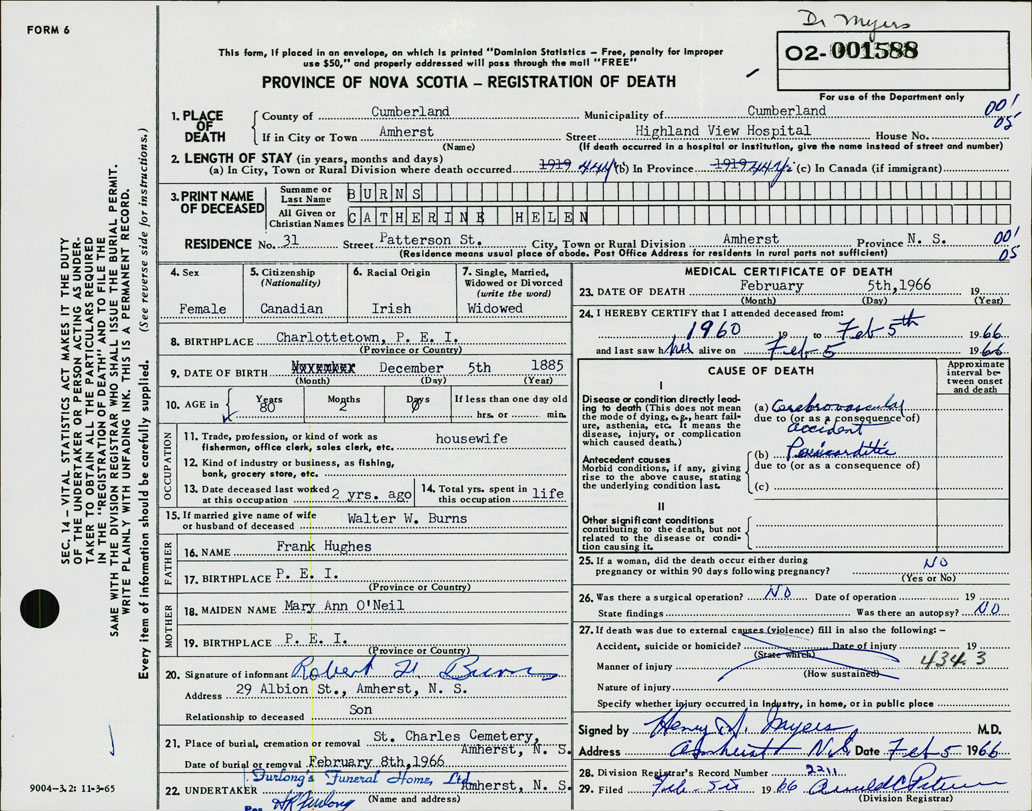 FORM 6
Dr Myers
This form, if placed in an envelope, on which is printed "Dominion Statistics – Free, penalty for improper
use $50," and properly addressed will pass through the mail "FREE"
PROVINCE OF NOVA SCOTIA – REGISTRATION OF DEATH
02-001588
For use of the Department only
1. PLACE OF DEATH
County of Cumberland Municipality of Cumberland 001
If in City or Town Amherst Street Highland View Hospital House No. 05
(Name) (If death occurred in a hospital or institution, give the name instead of street and number)
2. LENGTH OF STAY (in years, months and days)
(a) In City, Town or Rural Division where death occurred 1919 (b) In Province 1919 (c) In Canada (if immigrant)
3. PRINT NAME OF DECEASED
Surname or Last Name BURNS
All Given or Christian Names CATHERINE HELEN
RESIDENCE No. 31 Street Patterson St. City, Town or Rural Division Amherst Province N. S. 001 05
(Residence means usual place of abode. Post Office Address for residents in rural parts not sufficient)
4. Sex Female
5. Citizenship (Nationality) Canadian
6. Racial Origin Irish
7. Single, Married, Widowed or Divorced (write the word) Widowed
8. BIRTHPLACE Charlottetown, P. E. I.
(Province or Country)
9. DATE OF BIRTH December 5th 1885
(Month) (Day) (Year)
10. AGE in Years 80 Months 2 Days 0 If less than one day old hrs. or min.
OCCUPATION
11. Trade, profession, or kind of work as fisherman, office clerk, sales clerk, etc. housewife
12. Kind of industry or business, as fishing, bank, grocery store, etc.
13. Date deceased last worked at this occupation 2 yrs. ago
14. Total yrs. spent in this occupation life
15. If married give name of wife or husband of deceased Walter W. Burns
FATHER
16. NAME Frank Hughes
17. BIRTHPLACE P. E. I.
(Province or Country)
MOTHER
18. MAIDEN NAME Mary Ann O'Neil
19. BIRTHPLACE P. E. I.
(Province or Country)
20. Signature of informant Robert H. Burns
Address 29 Albion St., Amherst, N. S.
Relationship to deceased Son
21. Place of burial, cremation or removal St. Charles Cemetery, Amherst, N. S.
Date of burial or removal February 8th, 1966
22. UNDERTAKER Furlong's Funeral Home, Ltd Amherst, N. S.
Per Furlong (Name and address)
MEDICAL CERTIFICATE OF DEATH
23. DATE OF DEATH February 5th,1966 19
(Month) (Day) (Year)
24. I HEREBY CERTIFY that I attended deceased from:
1960 19 to Feb 5th 1966
and last saw her alive on Feb 5 1966
CAUSE OF DEATH
Approximate interval between onset and death
I
Disease or condition directly leading to death (This does not mean the mode of dying, e.g., heart failure, asthenia, etc. It means the disease, injury, or complication which caused death.)
(a) Cerebrovascular
due to (or as a consequence of)
accident
Antecedent causes
Morbid conditions, if any, giving rise to the above cause, stating the underlying condition last.
(b) Pericarditis
due to (or as a consequence of)
(c)
II
Other significant conditions
contributing to the death, but not related to the disease or condition causing it.
25. If a woman, did the death occur either during pregnancy or within 90 days following pregnancy? NO
(Yes or No)
26. Was there a surgical operation? NO Date of operation 19
State findings Was there an autopsy? NO
27. If death was due to external causes (violence) fill in also the following: –
Accident, suicide or homicide? Date of injury 19
(State which) 434.3
Manner of injury
(How sustained)
Nature of injury
Specify whether injury occurred in industry, in home, or in public place
Signed by Henry Myers M.D.
Address Amherst N.S Date Feb 5 1966
28. Division Registrar's Record Number 2211
29. Filed Feb 5th 1966
(Division Registrar)
SEC. 14 – VITAL STATISTICS ACT MAKES IT THE DUTY
OF THE UNDERTAKER OR PERSON ACTING AS UNDER-
TAKER TO OBTAIN ALL THE PARTICULARS REQUIRED
IN THE "REGISTRATION OF DEATH" AND TO FILE THE
SAME WITH THE DIVISION REGISTRAR WHO SHALL ISSUE THE BURIAL PERMIT.
WRITE PLAINLY WITH UNFADING INK. THIS IS A PERMANENT RECORD.
Every item of information should be carefully supplied. (See reverse side for instructions.)
9004–3.2: 11-3-65